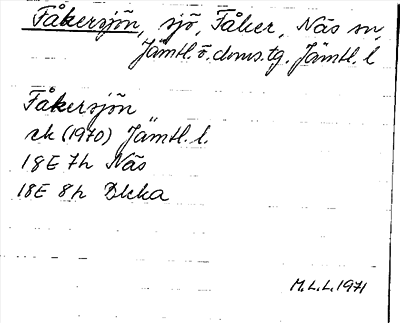 Fåkersjön, sjö, Fåker, Näs sn,
Jämtl. ö. doms. tg. Jämtl. l
Fåkersjön
ek (1970) Jämtl. l.
18E 7h Näs
18E 8h
M.L.L. 1971